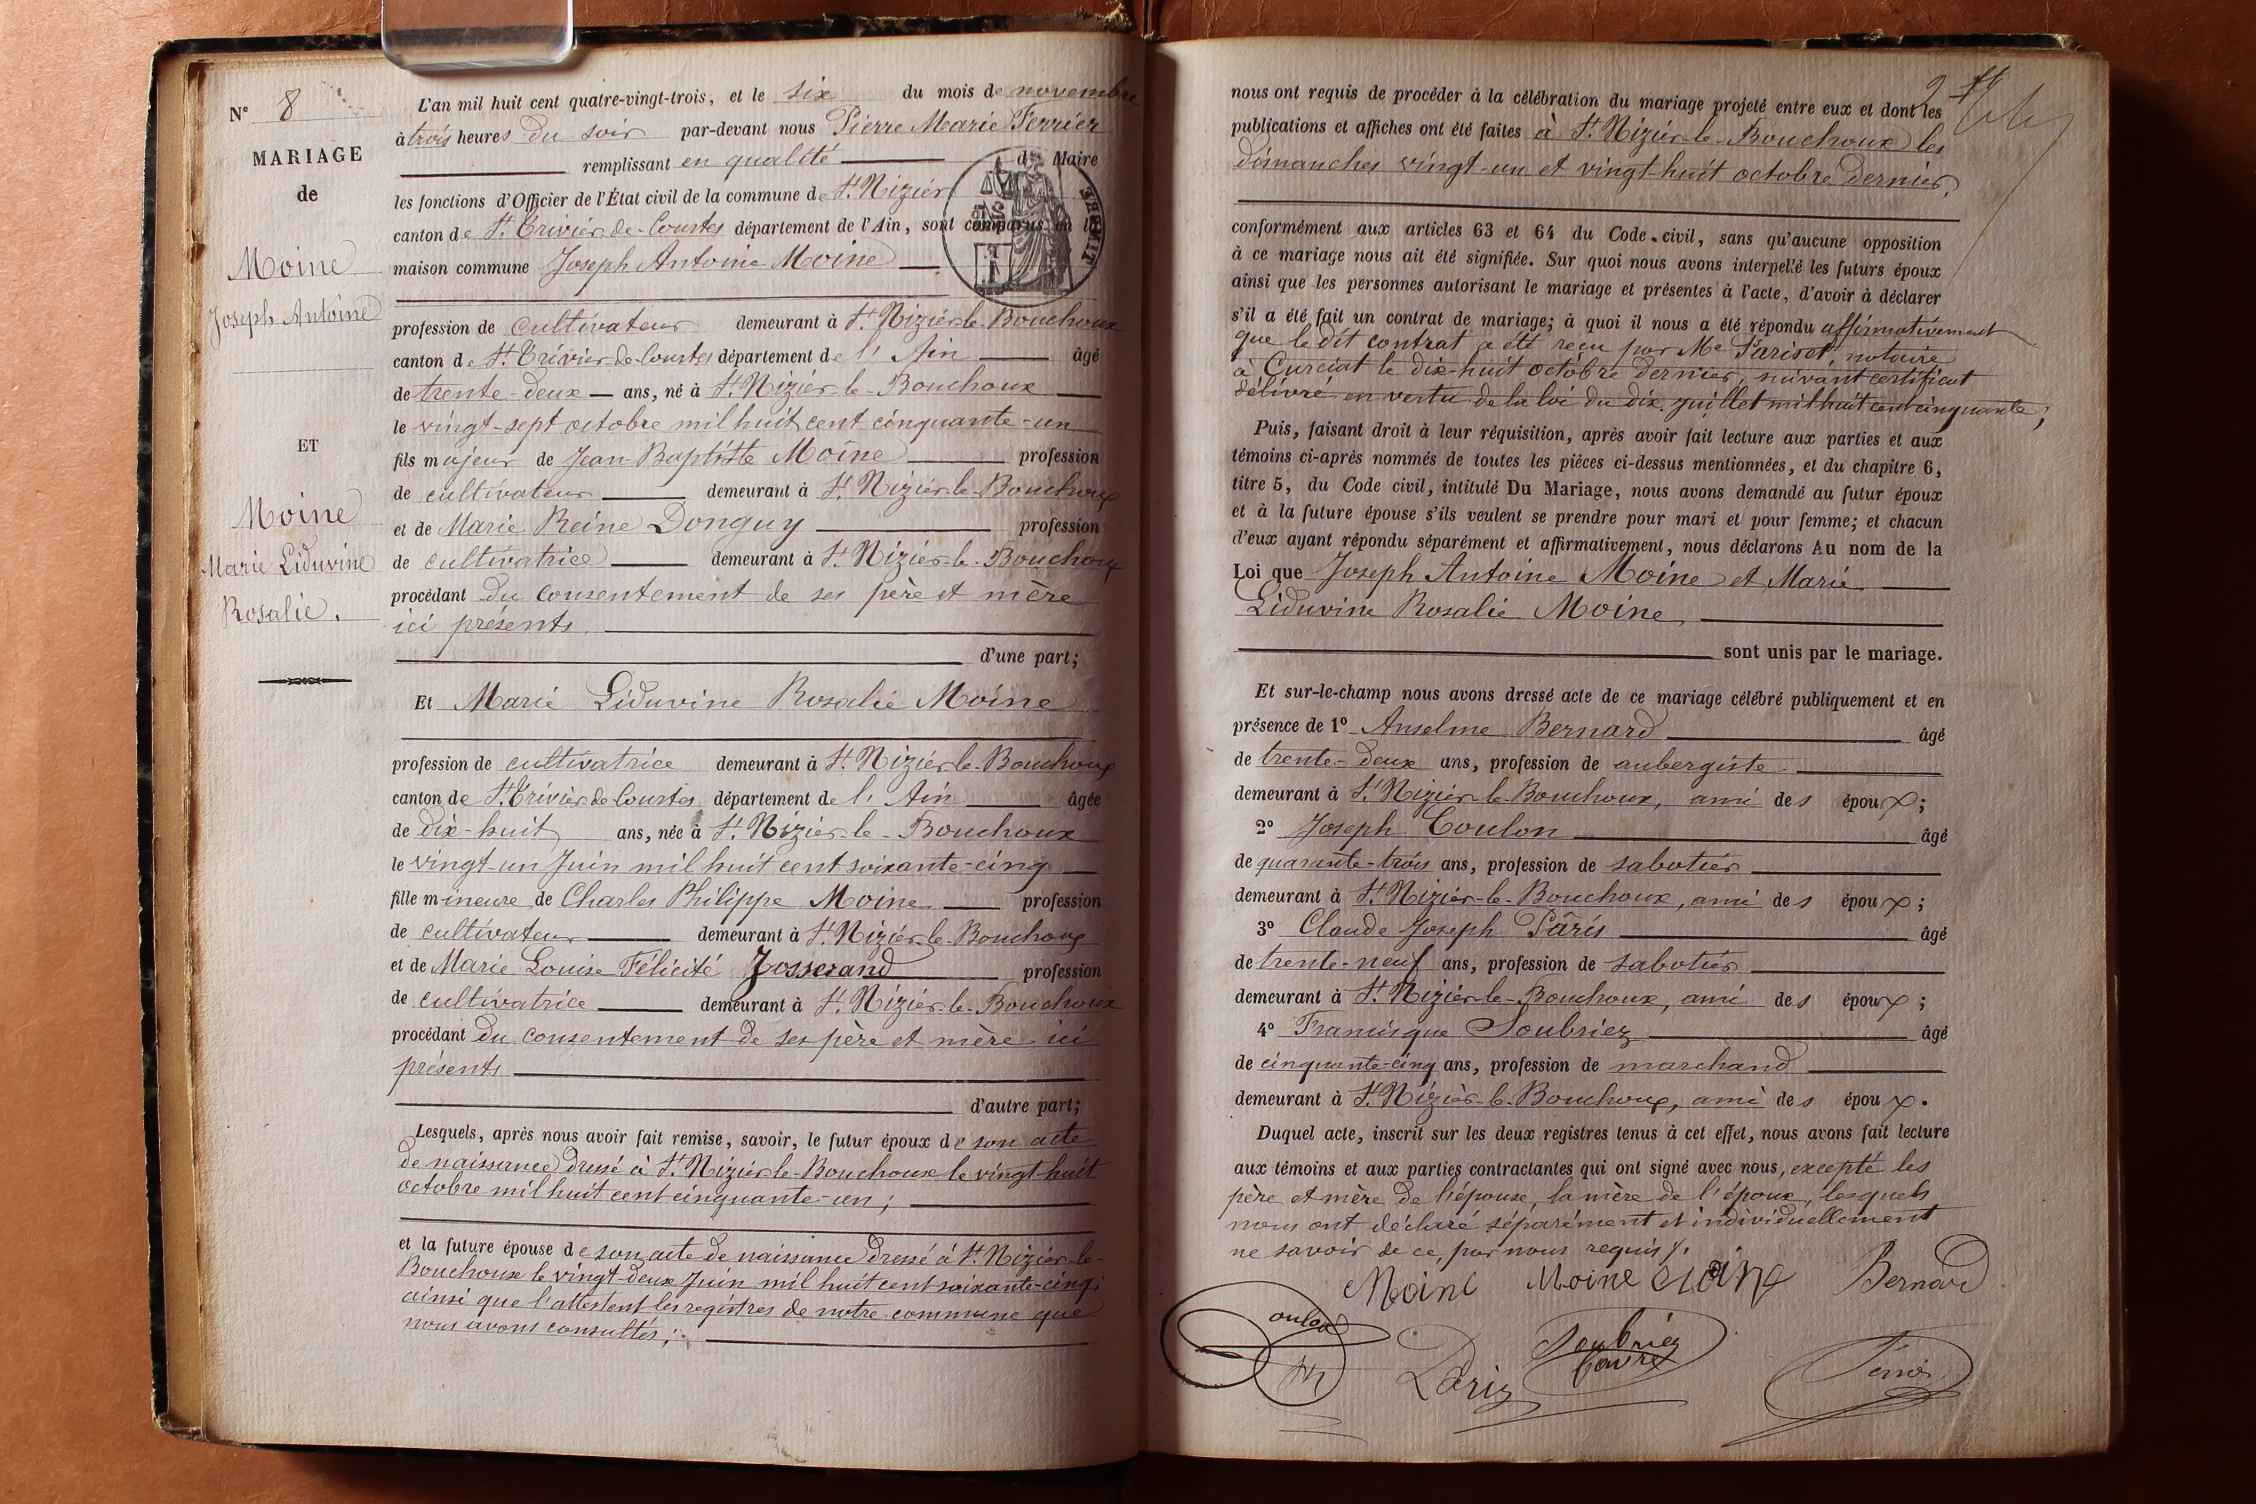 N° 8
MARIAGE
de
Moine
Joseph Antoine
ET
Moine
Marie Liduvine
Rosalie.
L'an mil huit cent quatre-vingt-trois, et le six du mois de novembre
à trois heures du soir par-devant nous Pierre Marie Ferrier
remplissant en qualité de Maire
les fonctions d'Officier de l'État civil de la commune de St Nizier
canton de St Trivier-de-Courtes département de l'Ain, sont comparus en la
maison commune Joseph Antoine Moine
profession de cultivateur demeurant à St Nizier-le-Bouchoux
canton de St Trivier-de-Courtes département de l'Ain âgé
de trente-deux ans, né à St Nizier-le-Bouchoux
le vingt-sept octobre mil huit cent cinquante-un
fils majeur de Jean Baptiste Moine profession
de cultivateur demeurant à St Nizier-le-Bouchoux
et de Marie Reine Donguy profession
de cultivatrice demeurant à St Nizier-le-Bouchoux
procédant du consentement de ses père et mère
ici présents
d'une part;
Et Marie Liduvine Rosalie Moine
profession de cultivatrice demeurant à St Nizier-le-Bouchoux
canton de St Trivier de Courtes département de l'Ain âgée
de dix-huit ans, née à St Nizier-le-Bouchoux
le vingt-un Juin mil huit cent soixante-cinq
fille mineure de Charles Philippe Moine profession
de cultivateur demeurant à St Nizier-le-Bouchoux
et de Marie Louise Félicité Josserand profession
de cultivatrice demeurant à St Nizier-le-Bouchoux
procédant du consentement de ses père et mère ici
présents
d'autre part;
Lesquels, après nous avoir fait remise, savoir, le futur époux de son acte
de naissance dressé à St Nizier-le-Bouchoux le vingt-huit
octobre mil huit cent cinquante-un;
et la future épouse de son acte de naissance dressé à St Nizier-le-
Bouchoux le vingt-deux Juin mil huit cent soixante-cinq;
ainsi que l'attestent les registres de notre commune que
nous avons consultés;
nous ont requis de procéder à la célébration du mariage projeté entre eux et dont les
publications et affiches ont été faites à St Nizier-le-Bouchoux les
dimanches vingt-un et vingt-huit octobre dernier,
conformément aux articles 63 et 64 du Code civil, sans qu'aucune opposition
à ce mariage nous ait été signifiée. Sur quoi nous avons interpellé les futurs époux
ainsi que les personnes autorisant le mariage et présentes à l'acte, d'avoir à déclarer
s'il a été fait un contrat de mariage; à quoi il nous a été répondu affirmativement
que le dit contrat a été reçu par Me Pariset, notaire
à Curciat le dix-huit octobre dernier, suivant certificat
délivré en vertu de la loi du dix juillet mil huit cent cinquante;
Puis, faisant droit à leur réquisition, après avoir fait lecture aux parties et aux
témoins ci-après nommés de toutes les pièces ci-dessus mentionnées, et du chapitre 6,
titre 5, du Code civil, intitulé Du Mariage, nous avons demandé au futur époux
et à la future épouse s'ils veulent se prendre pour mari et pour femme; et chacun
d'eux ayant répondu séparément et affirmativement, nous déclarons Au nom de la
Loi que Joseph Antoine Moine et Marie
Liduvine Rosalie Moine,
sont unis par le mariage.
Et sur-le-champ nous avons dressé acte de ce mariage célébré publiquement et en
présence de 1° Anselme Bernard âgé
de trente-deux ans, profession de aubergiste
demeurant à St Nizier-le-Bouchoux, ami des époux;
2° Joseph Coulon âgé
de quarante-trois ans, profession de sabotier
demeurant à St Nizier-le-Bouchoux, ami des époux;
3° Claude Joseph Pâris âgé
de trente-neuf ans, profession de sabotier
demeurant à St Nizier-le-Bouchoux, ami des époux;
4° Francisque Soubriez âgé
de cinquante-cinq ans, profession de marchand
demeurant à St Nizier-le-Bouchoux, ami des époux.
Duquel acte, inscrit sur les deux registres tenus à cet effet, nous avons fait lecture
aux témoins et aux parties contractantes qui ont signé avec nous, excepté les
père et mère de l'épouse, la mère de l'époux, lesquels
nous ont déclaré séparément et individuellement
ne savoir de ce, par nous requis.
Moine Moine Moine Bernard
Coulon
Pariz
Soubriez